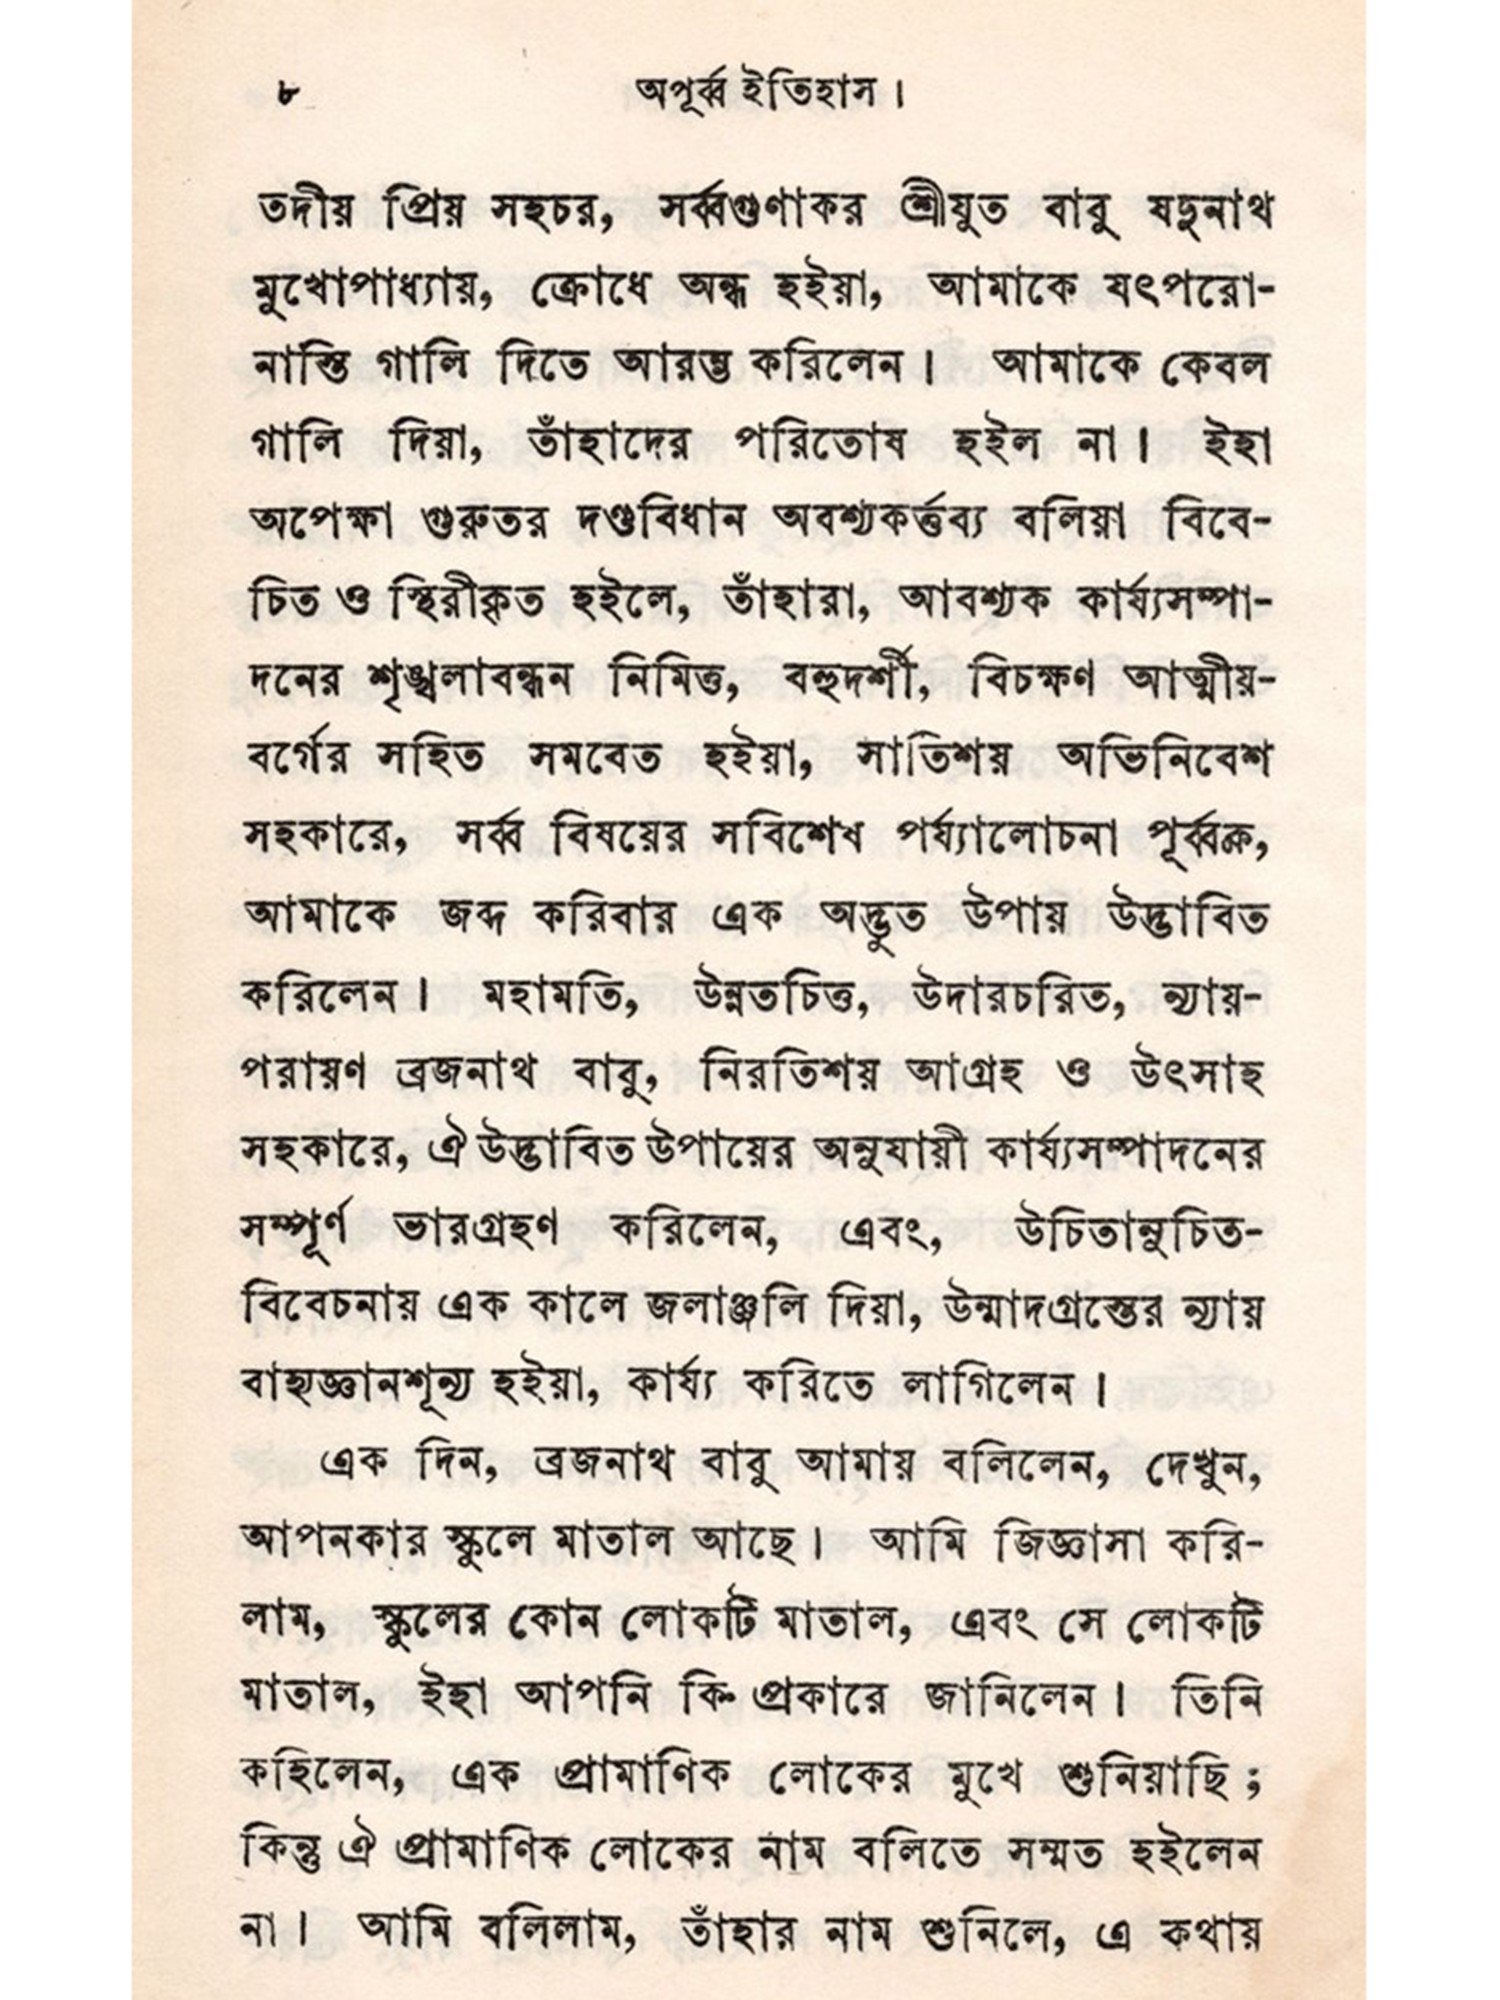 ৮
অপূর্ব্ব ইতিহাস।
তদীয় প্রিয় সহচর, সর্ব্বগুণাকর শ্রীযুত বাবু যদুনাথ
মুখোপাধ্যায়, ক্রোধে অন্ধ হইয়া, আমাকে যৎপরো-
নাস্তি গালি দিতে আরম্ভ করিলেন। আমাকে কেবল
গালি দিয়া, তাঁহাদের পরিতোষ হইল না। ইহা
অপেক্ষা গুরুতর দণ্ডবিধান অবশ্যকর্ত্তব্য বলিয়া বিবে-
চিত ও স্থিরীকৃত হইলে, তাঁহারা, আবশ্যক কার্য্যসম্পা-
দনের শৃঙ্খলাবন্ধন নিমিত্ত, বহুদর্শী, বিচক্ষণ আত্মীয়-
বর্গের সহিত সমবেত হইয়া, সাতিশয় অভিনিবেশ
সহকারে, সর্ব্ব বিষয়ের সবিশেষ পর্য্যালোচনা পূর্ব্বক,
আমাকে জব্দ করিবার এক অদ্ভুত উপায় উদ্ভাবিত
করিলেন। মহামতি, উন্নতচিত্ত, উদারচরিত, ন্যায়-
পরায়ণ ব্রজনাথ বাবু, নিরতিশয় আগ্রহ ও উৎসাহ
সহকারে, ঐ উদ্ভাবিত উপায়ের অনুযায়ী কার্য্যসম্পাদনের
সম্পূর্ণ ভারগ্রহণ করিলেন, এবং, উচিতানুচিত-
বিবেচনায় এক কালে জলাঞ্জলি দিয়া, উন্মাদগ্রস্তের ন্যায়
বাহ্যজ্ঞানশূন্য হইয়া, কার্য্য করিতে লাগিলেন।
এক দিন, ব্রজনাথ বাবু আমায় বলিলেন, দেখুন,
আপনকার স্কুলে মাতাল আছে। আমি জিজ্ঞাসা করি-
লাম, স্কুলের কোন লোকটি মাতাল, এবং সে লোকটি
মাতাল, ইহা আপনি কি প্রকারে জানিলেন। তিনি
কহিলেন, এক প্রামাণিক লোকের মুখে শুনিয়াছি;
কিন্তু ঐ প্রামাণিক লোকের নাম বলিতে সম্মত হইলেন
না। আমি বলিলাম, তাঁহার নাম শুনিলে, এ কথায়